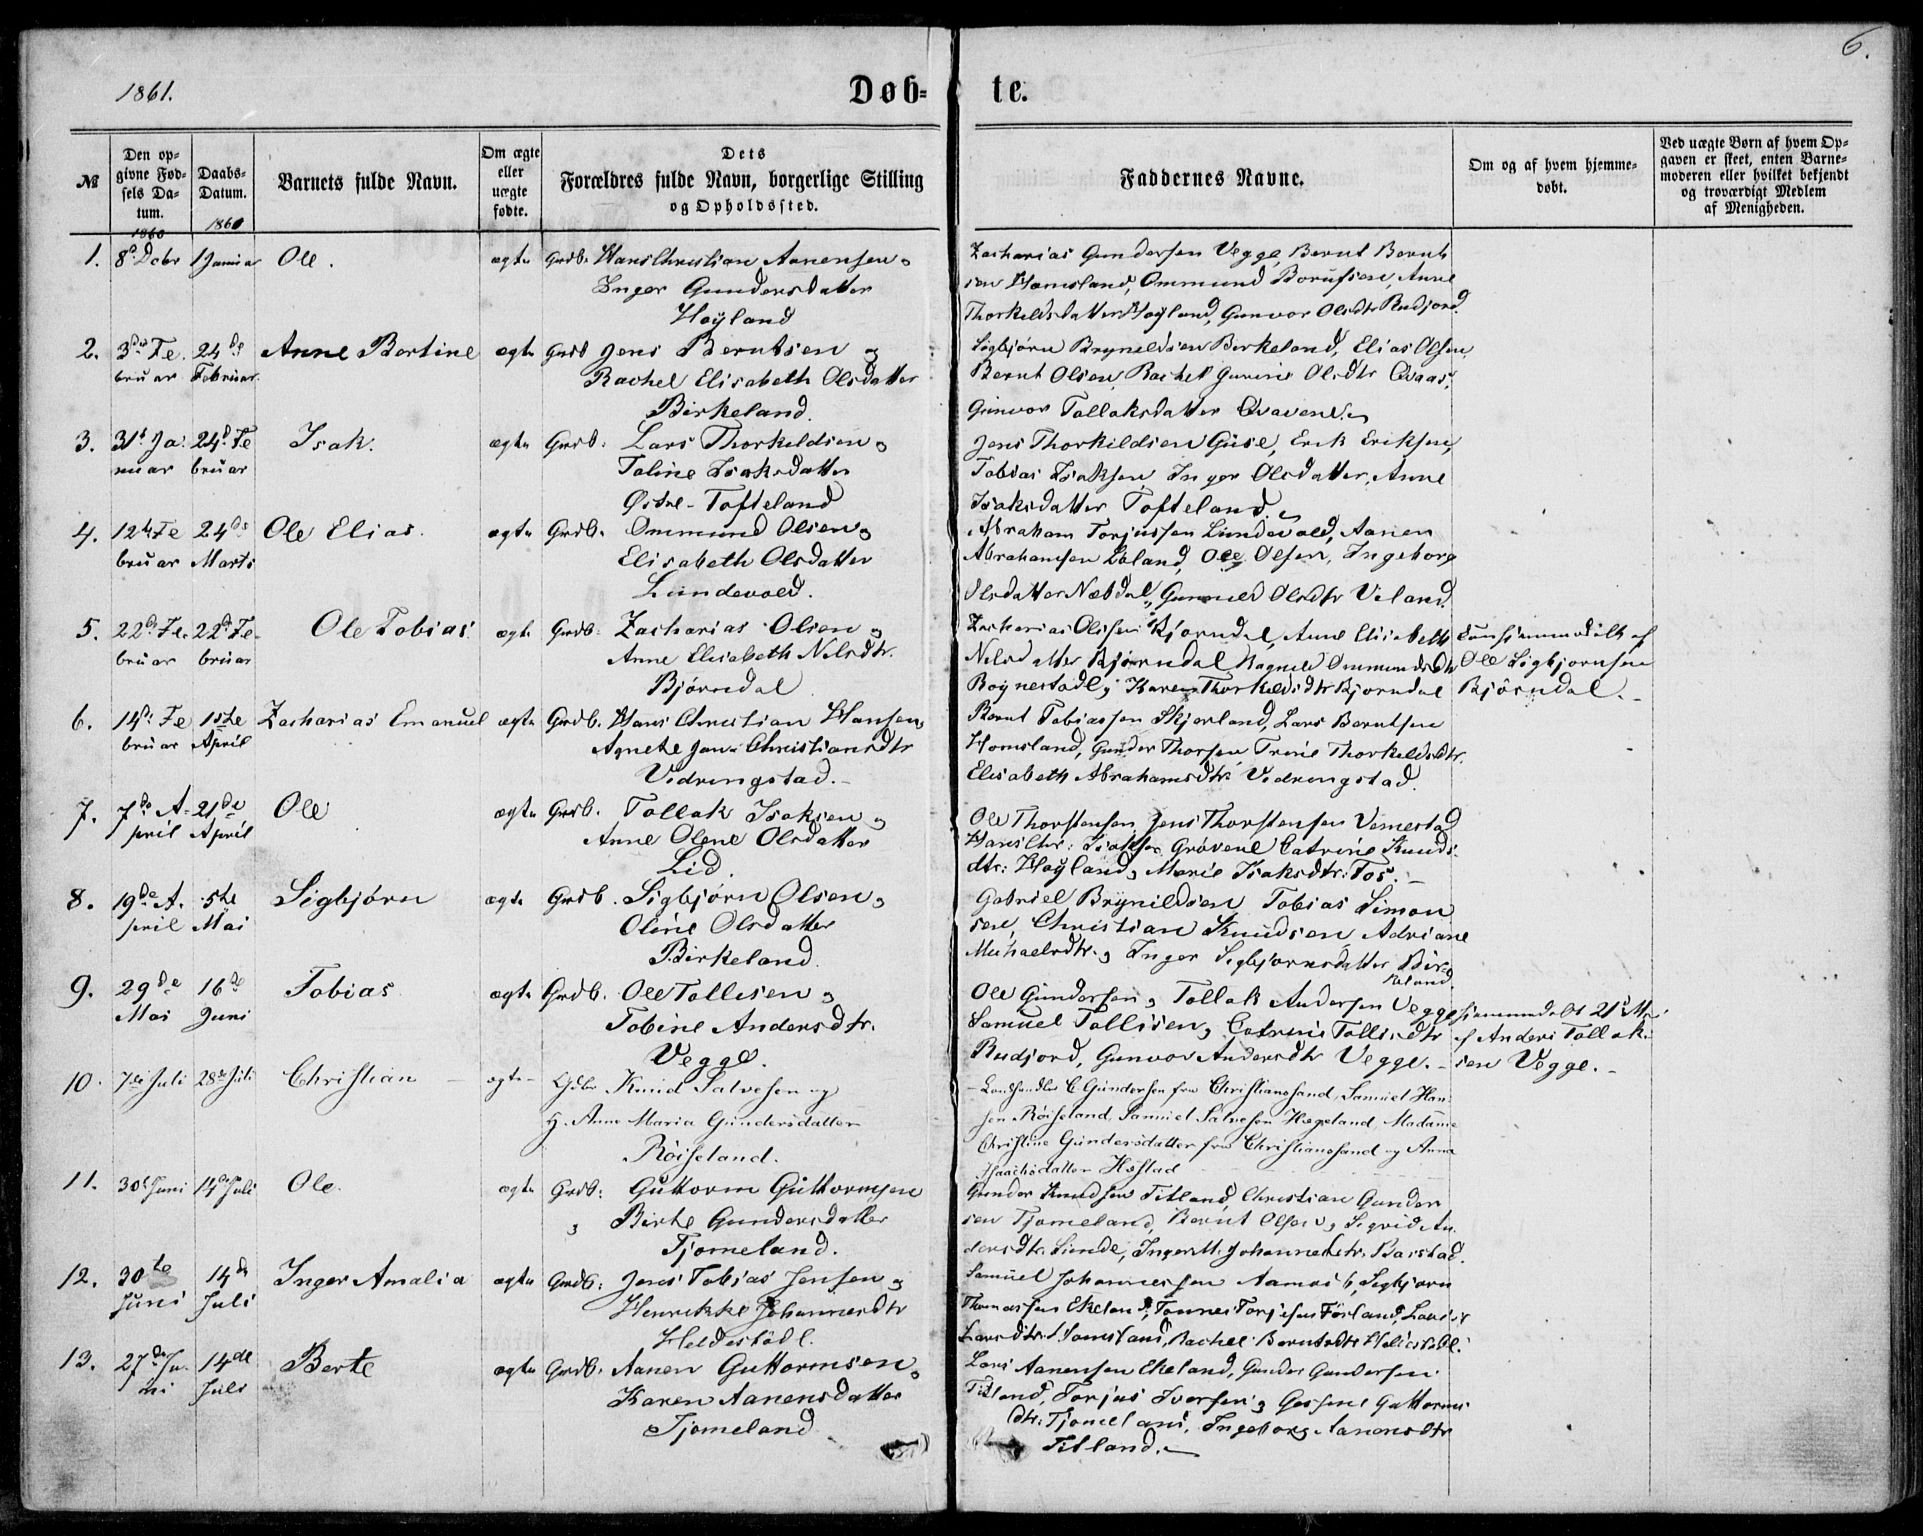 6.
1861.
Døb-
te.
№
Den op-
givne Fød-
sels Da-
tum.
1860
Daabs-
Datum.
1860
Barnets fulde Navn.
Om ægte
eller
uægte
fødte.
Dets
Forældres fulde Navn, borgerlige Stilling
og Opholdssted.
Faddernes Navne.
Om og af hvem hjemme-
døbt.
Ved uægte Børn af hvem Op-
gaven er skeet, enten Barne-
moderen eller hvilket bekjendt
og troværdigt Medlem
af Menigheden.
1. 8de Decbr 1 Januar Ole. ægte Grdb. Hans Christian Aanensen og
Inger Gundersdatter
Høyland
Zacharias Gundersen Vegge, Bernt Bernt
sen Homsland, Ommund Berntsen, Anne
Thorkildsdatter Høyland, Gunvor Olsdtr Rudjord.
2. 3die Fe. 24de Anne Bertine ægte Grdb Jens Berntsen og
bruar Februar. Rachel Elisabeth Olsdatter
Birkeland.
Sigbjørn Brynildsen Birkeland, Elias Olsen,
Bernt Olsen, Rachel Gurine Olsdtr Qvaas,
Gunvor Tollaksdatter Qvavene.
3. 31t Ja. 24d Fe Isak. ægte Grdb: Lars Thorkildsen og
nuar bruar Taline Isaksdatter
Østre-Tofteland
Jens Thorkildsen Guse, Erik Eriksen,
Tobias Isaksen, Inger Olsdatter, Anne
Isaksdatter Tofteland.
4. 12te Fe 24de Ole Elias. ægte Grdb. Ommund Olsen og
bruar Marts Elisabeth Olsdatter
Lundevold.
Abraham Torjussen Lundevold, Aanen
Abrahamsen Loland, Ole Olsen, Ingeborg
Olsdatter Næbdal, Gunuld Olsdtr Viland.
5. 22de Fe. 22de Fe. Ole Tobias ægte Grdb: Zacharias Olsen og
bruar bruar Anne Elisabeth Nilsdtr.
Bjørndal
Zacharias Olsen Bjørndal, Anne Elisabeth
Nilsdatter Bjørndal Ragnild Ommundsdtr
Røynestadl, Karen Thorkildsdtr Bjørndal
Ole Sigbjørnsen
Bjørndal.
6. 14de Fe 1ste Zacharias Emanuel ægte Grdb. Hans Christian Hansen
bruar April Agnete Jens Christiansdtr
Vedringstad.
Bernt Tobiassen Skjerland, Lars Berntsen
Homsland, Gunder Thorsen, Trine Thorkildsdtr.
Elisabeth Abrahamsdtr Vedringstad.
7. 7de A- 21de Ole ægte Grdb. Tollak Isaksen og
pril April Anne Olene Olsdatter
Lid.
Ole Thorstensen Jens Thorstensen Vemestad
Hans Chr: Isaksen Grøvene Catrine Knuds-
dtr: Høyland, Marie Isaksdtr: Fos.
8. 19de A. 5te Sigbjørn ægte Grdb. Sigbjørn Olsen og
pril Mai Oline Olsdatter
Birkeland.
Gabriel Brynildsen Tobias Simon
sen, Christian Knudsen, Adriane
Michaelsdtr. og Inger Sigbjørnsdatter Bir-
keland.
9. 29de 16de Tobias ægte Grdb. Ole Tollisen og
Mai Juni Tobine Andersdtr.
Vegge.
Ole Gundersen og Tollak Andersen Vegge
Samuel Tollisen, Catrine Tollisdtr
Rudjord, Gunvor Andersdtr Vegge.
hjemmedøbt 21de
af Anders Tollak-
sen Vegge.
10. 7de Juli 28de Juli Christian ægte Knud Salvesen og
H. Anne Maria Gundersdatter
Røiseland.
Landhandler C Gundersen fra Christianssand, Samuel Han-
sen Røiseland, Samuel Salvesen Hægeland, Madame
Christine Gundersdatter fra Christianssand og Anna
Isaachsdatter Hæstad
11. 30te Juni 14de Juli Ole. ægte Grdb: Guttorm Guttormsen
og Birte Gundersdatter
Tjomeland.
Gunder Knudsen Titland, Christian Gunder
sen Tjomeland, Bernt Olsen og Sigrid An-
dersdtr. Siende, Inger M. Johannesdtr. Barstad.
12. 30te 14de Inger Amalia ægte Grdb: Jens Tobias Jensen og
Juni Juli Henrikke Johannesdtr
Heldestødl.
Samuel Johannessen Aamodt, Sigbjørn
Thomassen Ekeland, Tønnes Torjesen Førland,
Larsdtr. Homsland, Rachel Berntsdtr Heldestødl.
13. 27de Ju. 14de Berte ægte Grdb. Aanen Guttormsen og
ni Juli Karen Aanensdatter
Tjomeland
Lars Aanensen Ekeland, Gunder Gundersen
Titland, Torjus Iversen og Gesine Guttorms
dtr: Tjomeland, Ingeborg Aanensdtr
Titland.